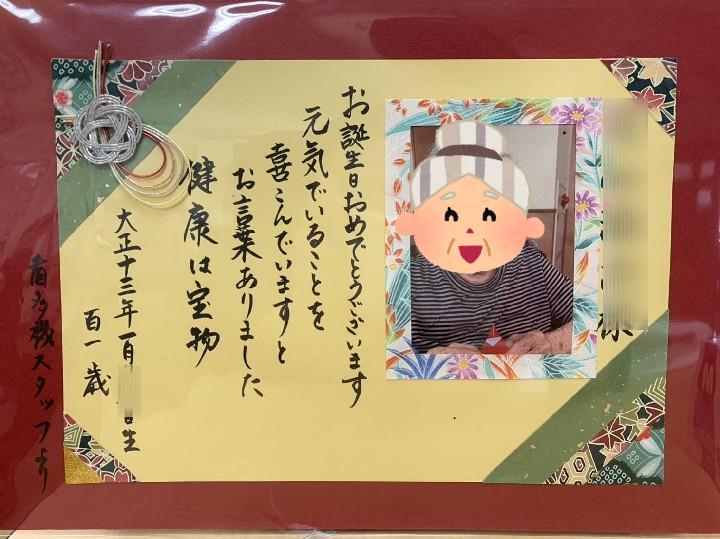 様
お誕生日おめでとうございます
元気でいることを
喜こんでいますと
お言葉ありました
健康は宝物
大正十三年一月 日生
百一歳
スタッフより